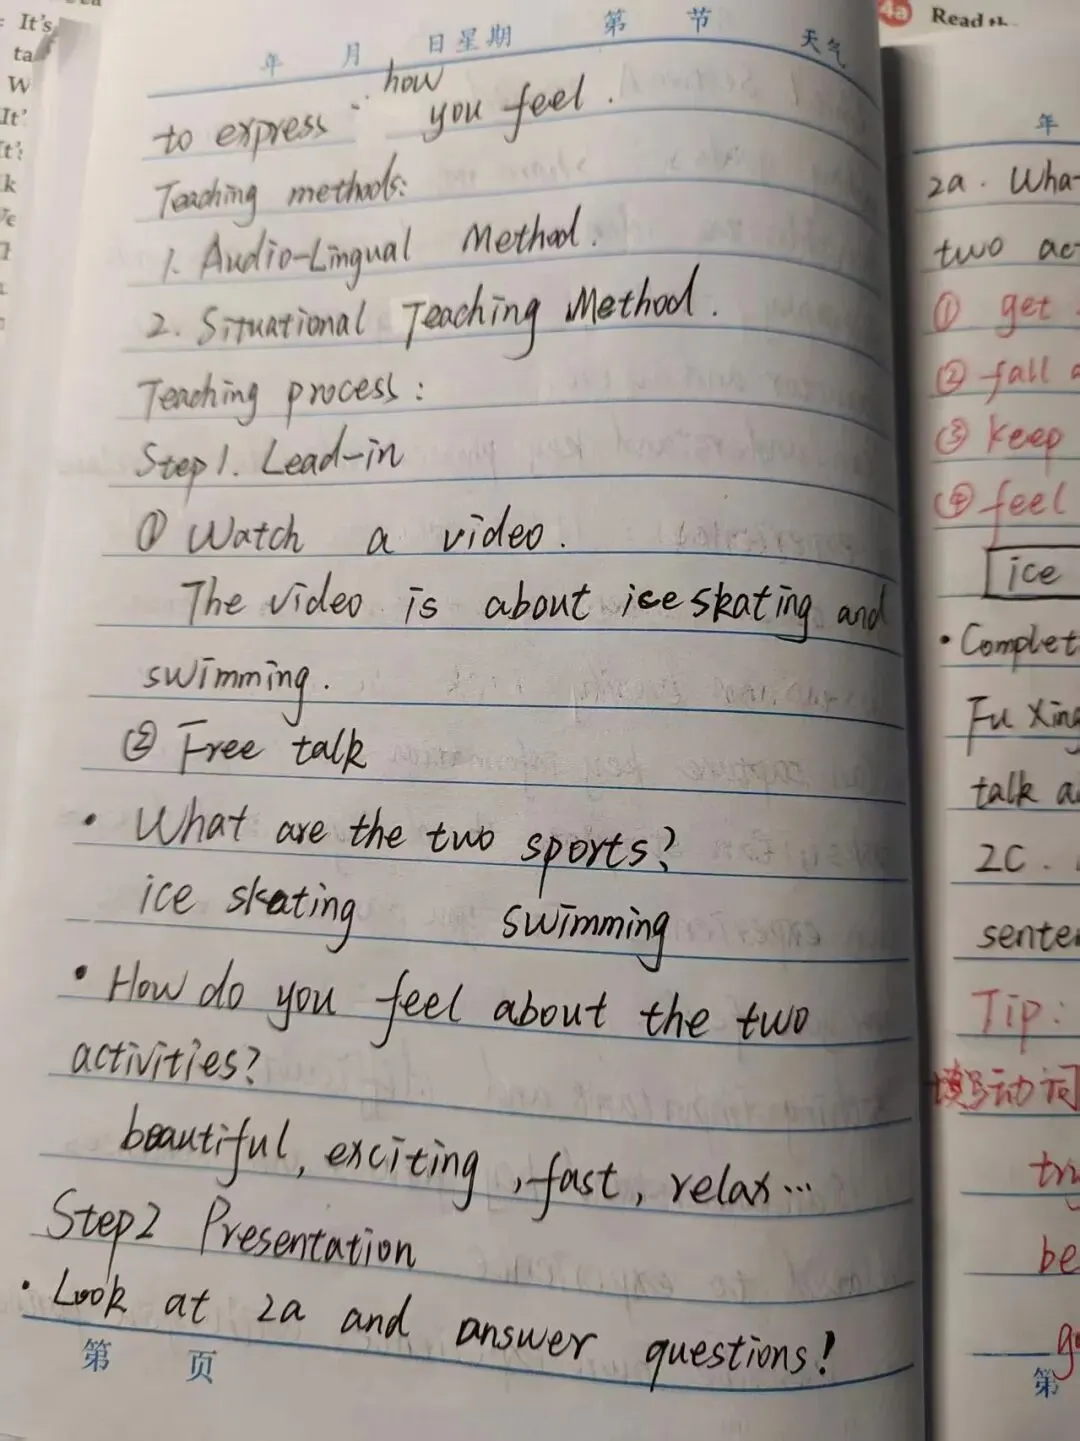 It's
ta
W
It'
年 月 日 星期 第 节 天气
how
to express you feel.
Teaching methods:
1. Audio-Lingual Method.
2. Situational Teaching Method.
Teaching process:
Step1. Lead-in
① Watch a video.
The video is about ice skating and
swimming.
② Free talk
• What are the two sports?
ice skating swimming
• How do you feel about the two
activities?
beautiful, exciting, fast, relax...
Step2 Presentation
• Look at 2a and answer questions!
第 页
4a Read
年
2a. Wha
two ac
① get
② fall
③ keep
④ feel
ice
• Complet
Fu Xing
talk a
2C.
senten
Tip:
填写动词
try
be
第